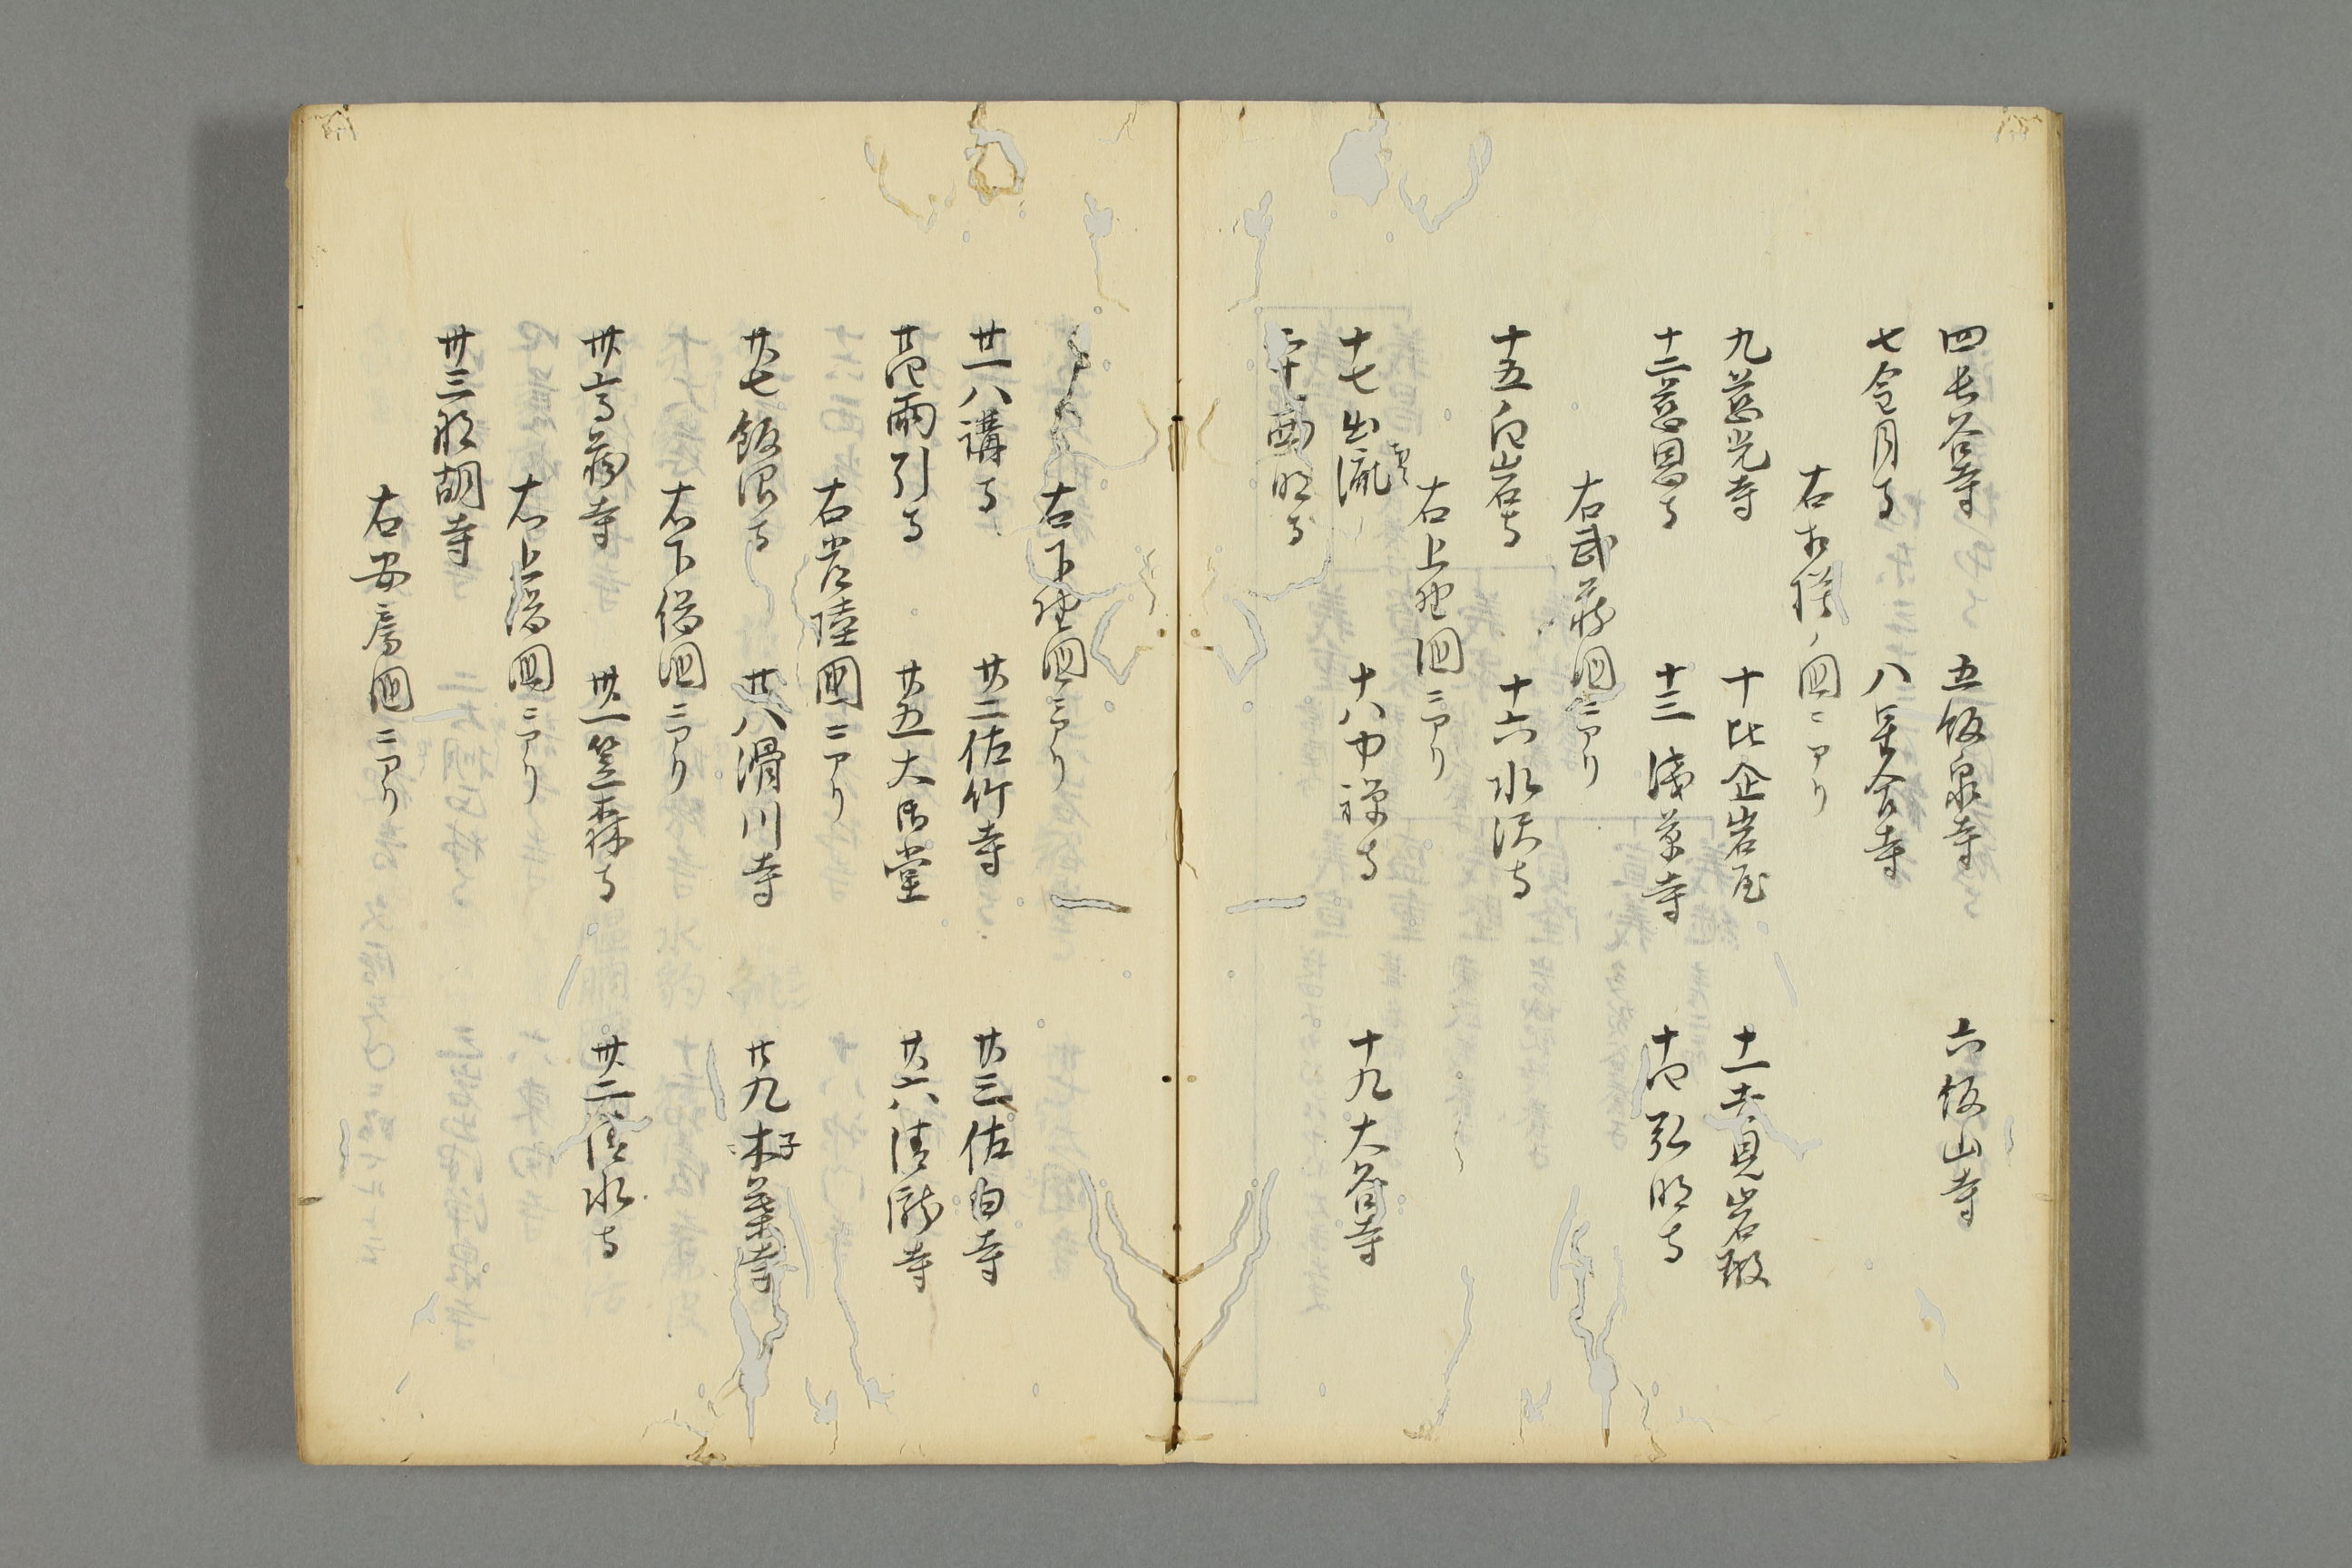 四長谷寺　五飯泉寺　六飯山寺
七金目寺　八星合寺
右相模ノ国ニアリ
九慈光寺　十比企岩屋　十一吉見岩殿
十二慈恩寺　十三浅草寺　十四弘明寺
右武蔵国ニアリ
十五白岩寺　十六水沢寺
右上野国ニアリ
十七出流　十八中禅寺　十九大谷寺
二十西明寺
右下野国ニアリ
廿一八講寺　廿二佐竹寺　廿三佐白寺
廿四雨引寺　廿五大御堂　廿六清瀧寺
右常陸国ニアリ
廿七飯沼寺　廿八滑川寺　廿九千葉寺
右下総国ニアリ
卅高蔵寺　卅一笠森寺　卅二清水寺
右上総国ニアリ
卅三那胡寺
右安房国ニアリ